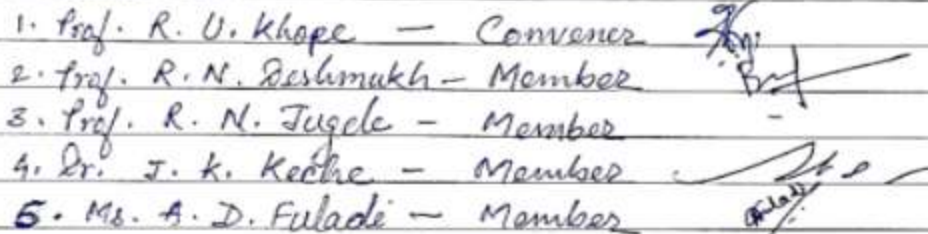 1. Prof. R. U. Khope — Convener
2. Prof. R. N. Deshmukh - Member
3. Prof. R. N. Jugele - Member
4. Dr. J. K. Keche - Member
5. Ms. A. D. Fuladi - Member